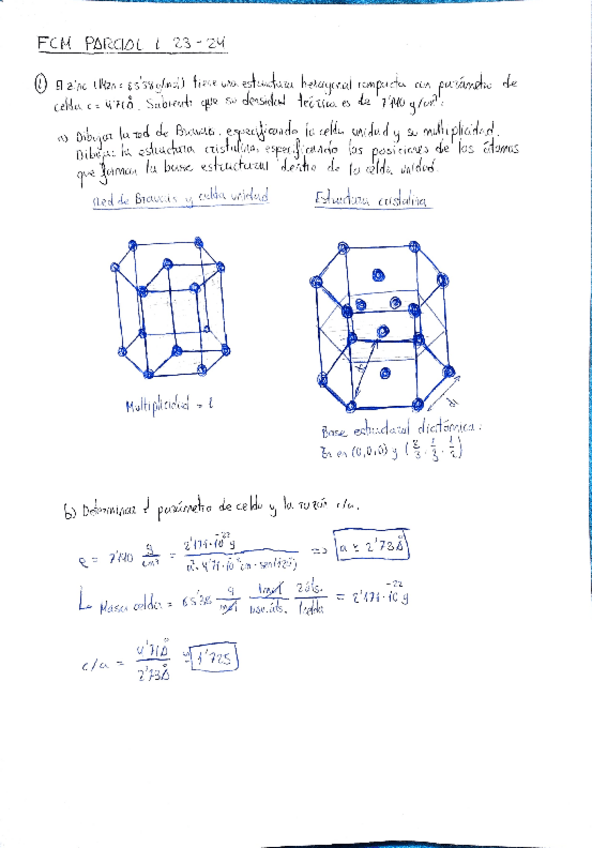 FCM PARCIAL 1 23-24
① El zinc (MZn = 65'38 g/mol) tiene una estructura hexagonal compacta con parámetro de
celda c = 4'71Å. Sabiendo que su densidad teórica es de 7'140 g/cm³:
a) Dibujar la red de Bravais, especificando la celda unidad y su multiplicidad.
Dibujar la estructura cristalina, especificando las posiciones de los átomos
que forman la base estructural dentro de la celda unidad.
Red de Bravais y celda unidad
Estructura cristalina
Multiplicidad = 1
a
a
Base estructural diatómica:
Zn en (0,0,0) y (2/3, 1/3, 1/2)
b) Determinar el parámetro de celda y la razón c/a.
ρ = 7'140 g/cm³ = 2'171·10⁻²² g / a²·4'71·10⁻⁸cm·sen(120) => a = 2'73Å
Masa celda = 65'38 g/mol · 1mol/ · 2áts./1celda = 2'171·10⁻²² g
c/a = 4'71Å / 2'73Å = 1'725